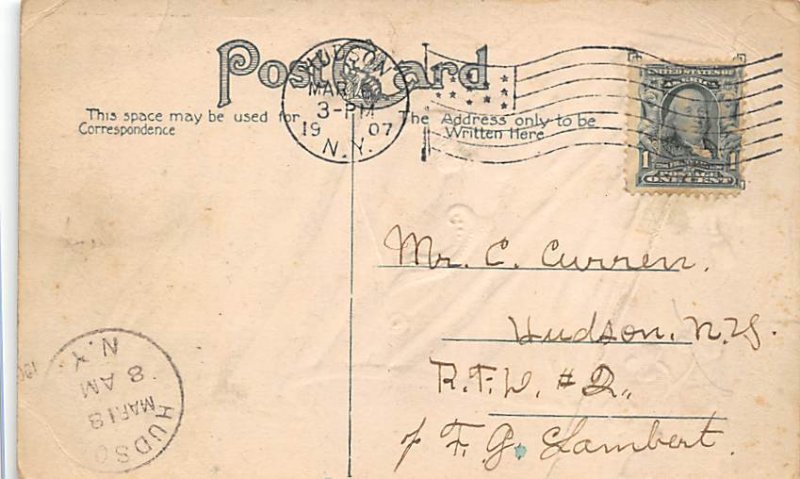 Post Card
This space may be used for
Correspondence
The Address only to be
Written Here
HUDSON
MAR
3-PM
19 07
N.Y.
UNITED STATES OF
AMERICA
1 1
POSTAGE
ONE CENT
Mr. C. Curren.
Hudson, N.Y.
R.F.D. #2,
℅ F. G. Lambert.
HUDSO
MAR 18
8 AM
N.Y.